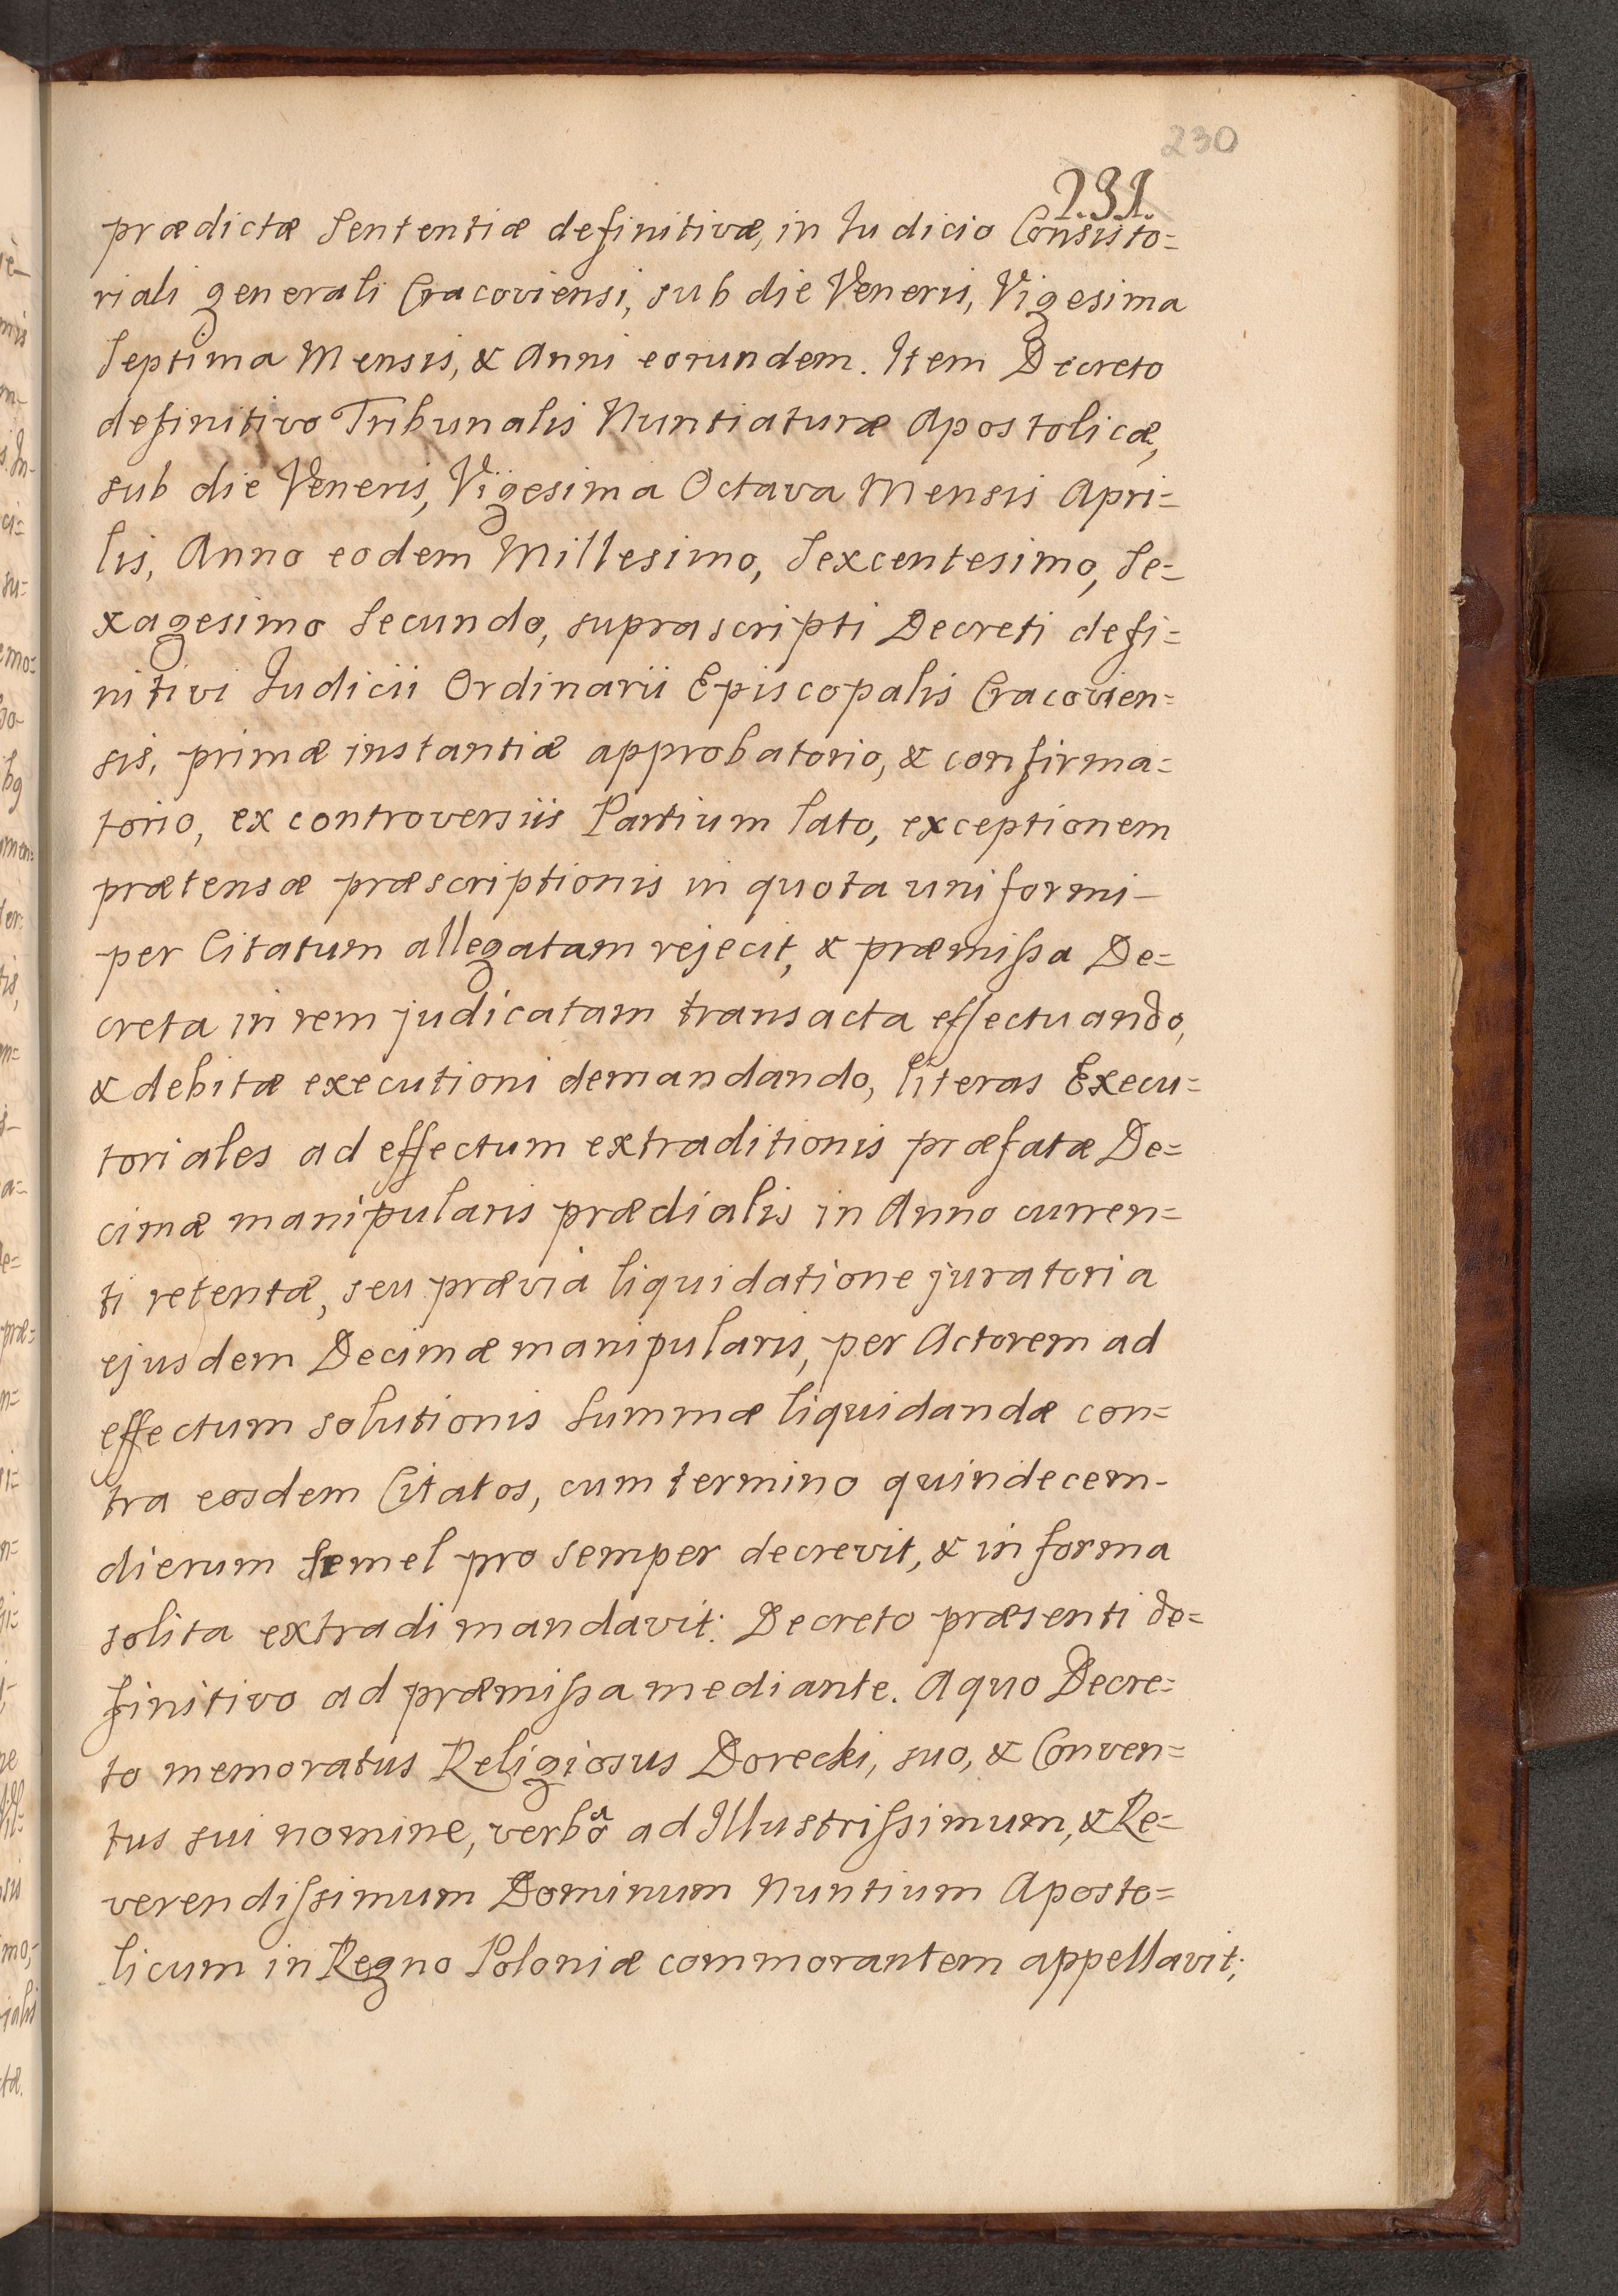 230
231.
prædictæ Sententiæ definitivæ, in Iudicio Consisto=
riali generali Cracoviensi, sub die Veneris, Vigesima
Septima Mensis, & Anni eorundem. Item Decreto
definitivo Tribunalis Nuntiaturæ Apostolicæ,
sub die Veneris, Vigesima Octava Mensis Apri=
lis, Anno eodem Millesimo, Sexcentesimo, Se=
xagesimo Secundo, suprascripti Decreti defi=
nitivi Iudicii Ordinarii Episcopalis Cracovien=
sis, primæ instantiæ approbatorio, & confirma=
torio, ex controversiis Partium lato, exceptionem
prætensæ præscriptionis in quota uniformi-
per Citatum allegatam rejecit, & præmissa De=
creta in rem judicatam transacta effectuando,
& debitæ executioni demandando, literas Execu=
toriales ad effectum extraditionis præfatæ De=
cimæ manipularis prædialis in Anno curren=
ti retentæ, seu prævia liquidatione juratoria
ejusdem Decimæ manipularis, per Actorem ad
effectum solutionis Summæ liquidandæ con=
tra eosdem Citatos, cum termino quindecem-
dierum semel pro semper decrevit, & in forma
solita extradi mandavit: Decreto præsenti de=
finitivo ad præmissa mediante. A quo Decre=
to memoratus Religiosus Dorecki, suo, & Conven=
tus sui nomine, verbo ad Illustrissimum, & Re=
verendissimum Dominum Nuntium Aposto=
licum in Regno Poloniæ commorantem appellavit;